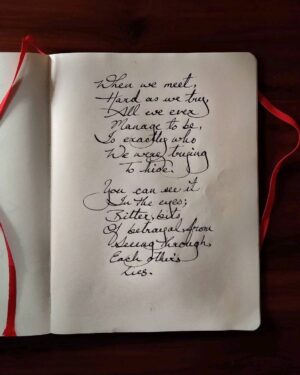 When we meet,
Hard as we try,
All we ever
Manage to be,
Is exactly who
We were trying
To hide.
You can see it
In the eyes;
Bitter bits,
Of betrayal from
Seeing through
Each other's
Lies.